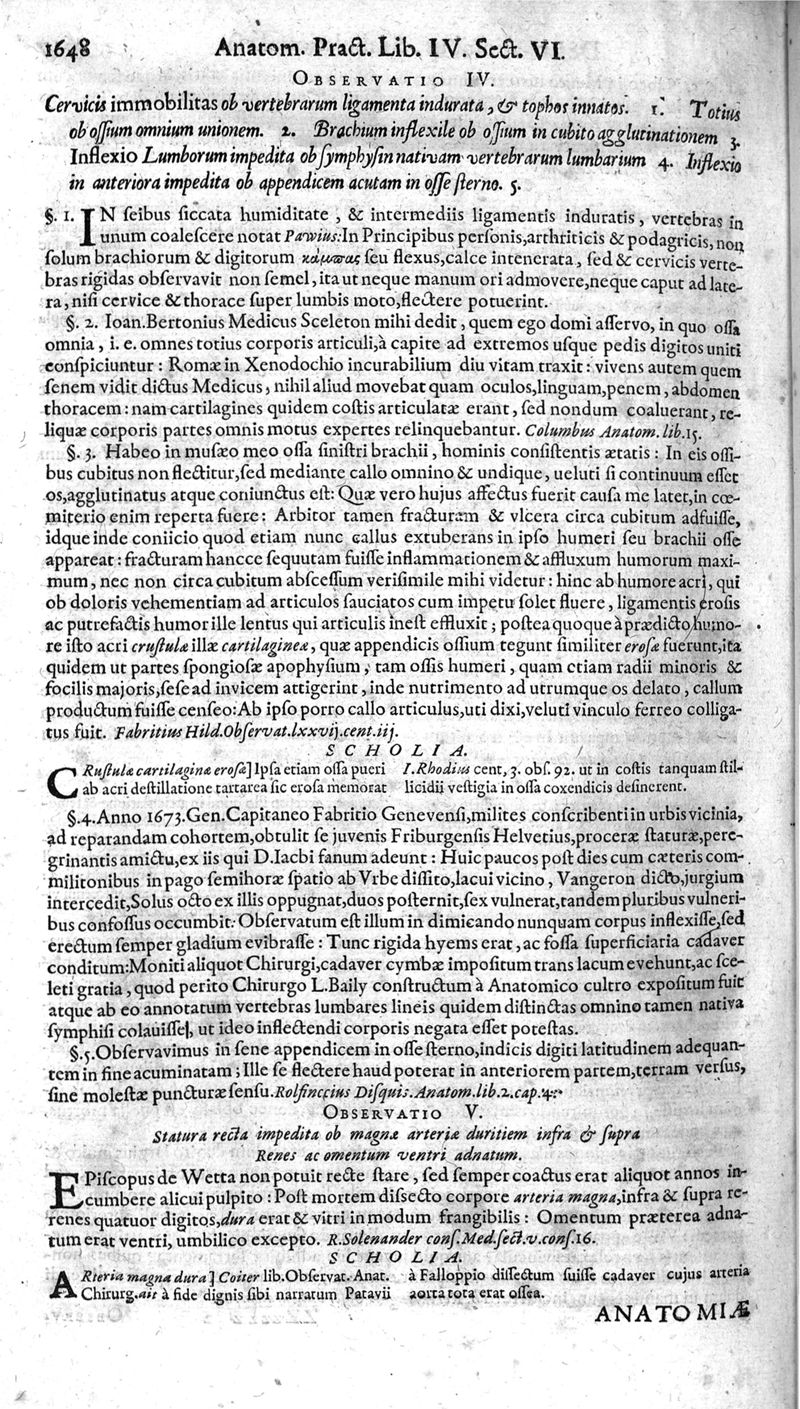 1648 Anatom. Pract. Lib. IV. Sect. VI.
OBSERVATIO IV.
Cervicis immobilitas ob vertebrarum ligamenta indurata, & tophos innatos. 1. Totius
ob ossium omnium unionem. 2. Brachium inflexile ob ossium in cubito agglutinationem 3.
Inflexio Lumborum impedita ob symphysin nativam vertebrarum lumbarium 4. Inflexio
in anteriora impedita ob appendicem acutam in osse sterno. 5.
§. 1. IN seibus siccata humiditate, & intermediis ligamentis induratis, vertebras in
unum coalescere notat Pawius: In Principibus personis, arthriticis & podagricis, non
solum brachiorum & digitorum κάμπας seu flexus, calce intenerata, sed & cervicis verte-
bras rigidas observavit non semel, ita ut neque manum ori admovere, neque caput ad late-
ra, nisi cervice & thorace super lumbis moto, flectere potuerint.
§. 2. Ioan. Bertonius Medicus Sceleton mihi dedit, quem ego domi asservo, in quo ossa
omnia, i. e. omnes totius corporis articuli, à capite ad extremos usque pedis digitos uniti
conspiciuntur: Romæ in Xenodochio incurabilium diu vitam traxit: vivens autem quem
senem vidit dictus Medicus, nihil aliud movebat quam oculos, linguam, penem, abdomen
thoracem: nam cartilagines quidem costis articulatæ erant, sed nondum coaluerant, re-
liquæ corporis partes omnis motus expertes relinquebantur. Columbus Anatom. lib. 15.
§. 3. Habeo in musæo meo ossa sinistri brachii, hominis consistentis ætatis: In eis ossi-
bus cubitus non flectitur, sed mediante callo omnino & undique, ueluti si continuum esset
os, agglutinatus atque coniunctus est: Quæ vero hujus affectus fuerit causa me later, in cœ-
miterio enim reperta fuere: Arbitor tamen fracturam & vlcera circa cubitum adfuisse,
idque inde coniicio quod etiam nunc callus extuberans in ipso humeri seu brachii osse
appareat: fracturam hancce sequutam fuisse inflammationem & affluxum humorum maxi-
mum, nec non circa cubitum abscessum verisimile mihi videtur: hinc ab humore acri, qui
ob doloris vehementiam ad articulos sauciatos cum impetu solet fluere, ligamentis erosis
ac putrefactis humor ille lentus qui articulis inest effluxit; postea quoque à prædicto humo-
re isto acri crustulæ illæ cartilagineæ, quæ appendicis ossium tegunt similiter erosæ fuerunt, ita
quidem ut partes spongiosæ apophysium, tam ossis humeri, quam etiam radii minoris &
focilis majoris, sese ad invicem attigerint, inde nutrimento ad utrumque os delato, callum
productum fuisse censeo: Ab ipso porro callo articulus, uti dixi, veluti vinculo ferreo colliga-
tus fuit. Fabritius Hild. Observat. lxxvij. cent. iij.
SCHOLIA.
CRustulæ cartilaginæ erosæ] Ipsa etiam ossa pueri
ab acri destillatione tartarea sic erosa memorat
I. Rhodius cent, 3. obs. 92. ut in costis tanquam stil-
licidii vestigia in ossa coxendicis desinerent.
§. 4. Anno 1673. Gen. Capitaneo Fabritio Genevensi, milites conscribenti in urbis vicinia,
ad reparandam cohortem, obtulit se juvenis Friburgensis Helvetius, proceræ staturæ, pere-
grinantis amictu, ex iis qui D. Iacbi fanum adeunt: Huic paucos post dies cum cæteris com-
militonibus in pago semihoræ spatio ab Vrbe dissito, lacui vicino, Vangeron dicto, jurgium
intercedit, Solus octo ex illis oppugnat, duos posternit, sex vulnerat, tandem pluribus vulneri-
bus confossus occumbit: Observatum est illum in dimicando nunquam corpus inflexisse, sed
erectum semper gladium evibrasse: Tunc rigida hyems erat, ac fossa superficiaria cadaver
conditum: Moniti aliquot Chirurgi, cadaver cymbæ impositum trans lacum evehunt, ac sce-
leti gratia, quod perito Chirurgo L. Baily constructum à Anatomico cultro expositum fuit
atque ab eo annotatum vertebras lumbares lineis quidem distinctas omnino tamen nativa
symphisi colauisse, ut ideo inflectendi corporis negata esset potestas.
§. 5. Observavimus in sene appendicem in osse sterno, indicis digiti latitudinem adequan-
tem in fine acuminatam; Ille se flectere haud poterat in anteriorem partem, terram versus,
sine molestæ puncturæ sensu. Rolfinccius Disquis. Anatom. lib. 2. cap. 4.
OBSERVATIO V.
Statura recta impedita ob magnæ arteriæ duritiem infra & supra
Renes ac omentum ventri adnatum.
EPiscopus de Wetta non potuit recte stare, sed semper coactus erat aliquot annos in-
cumbere alicui pulpito: Post mortem dissecto corpore arteria magna, infra & supra re-
renes quatuor digitos, dura erat & vitri in modum frangibilis: Omentum præterea adna-
tum erat ventri, umbilico excepto. R. Solenander cons. Med. sect. v. cons. 16.
SCHOLIA.
ARteria magna dura] Coiter lib. Observat. Anat.
Chirurg. ait à fide dignis sibi narratum Patavii
à Falloppio dissectum fuisse cadaver cujus arteria
aorta tota erat ossea.
ANATOMIÆ